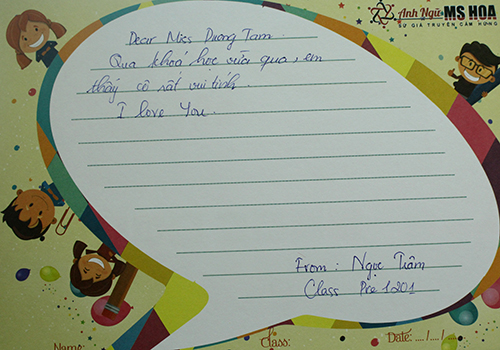 Anh Ngữ MS HOA
SỨ GIẢ TRUYỀN CẢM HỨNG
Dear Miss Duong Tam.
Qua khóa học vừa qua, em
thấy cô rất vui tính.
I love You.
From: Ngọc Trâm
Class Pre 1201
Name:
Class:
Date: ..../..../....